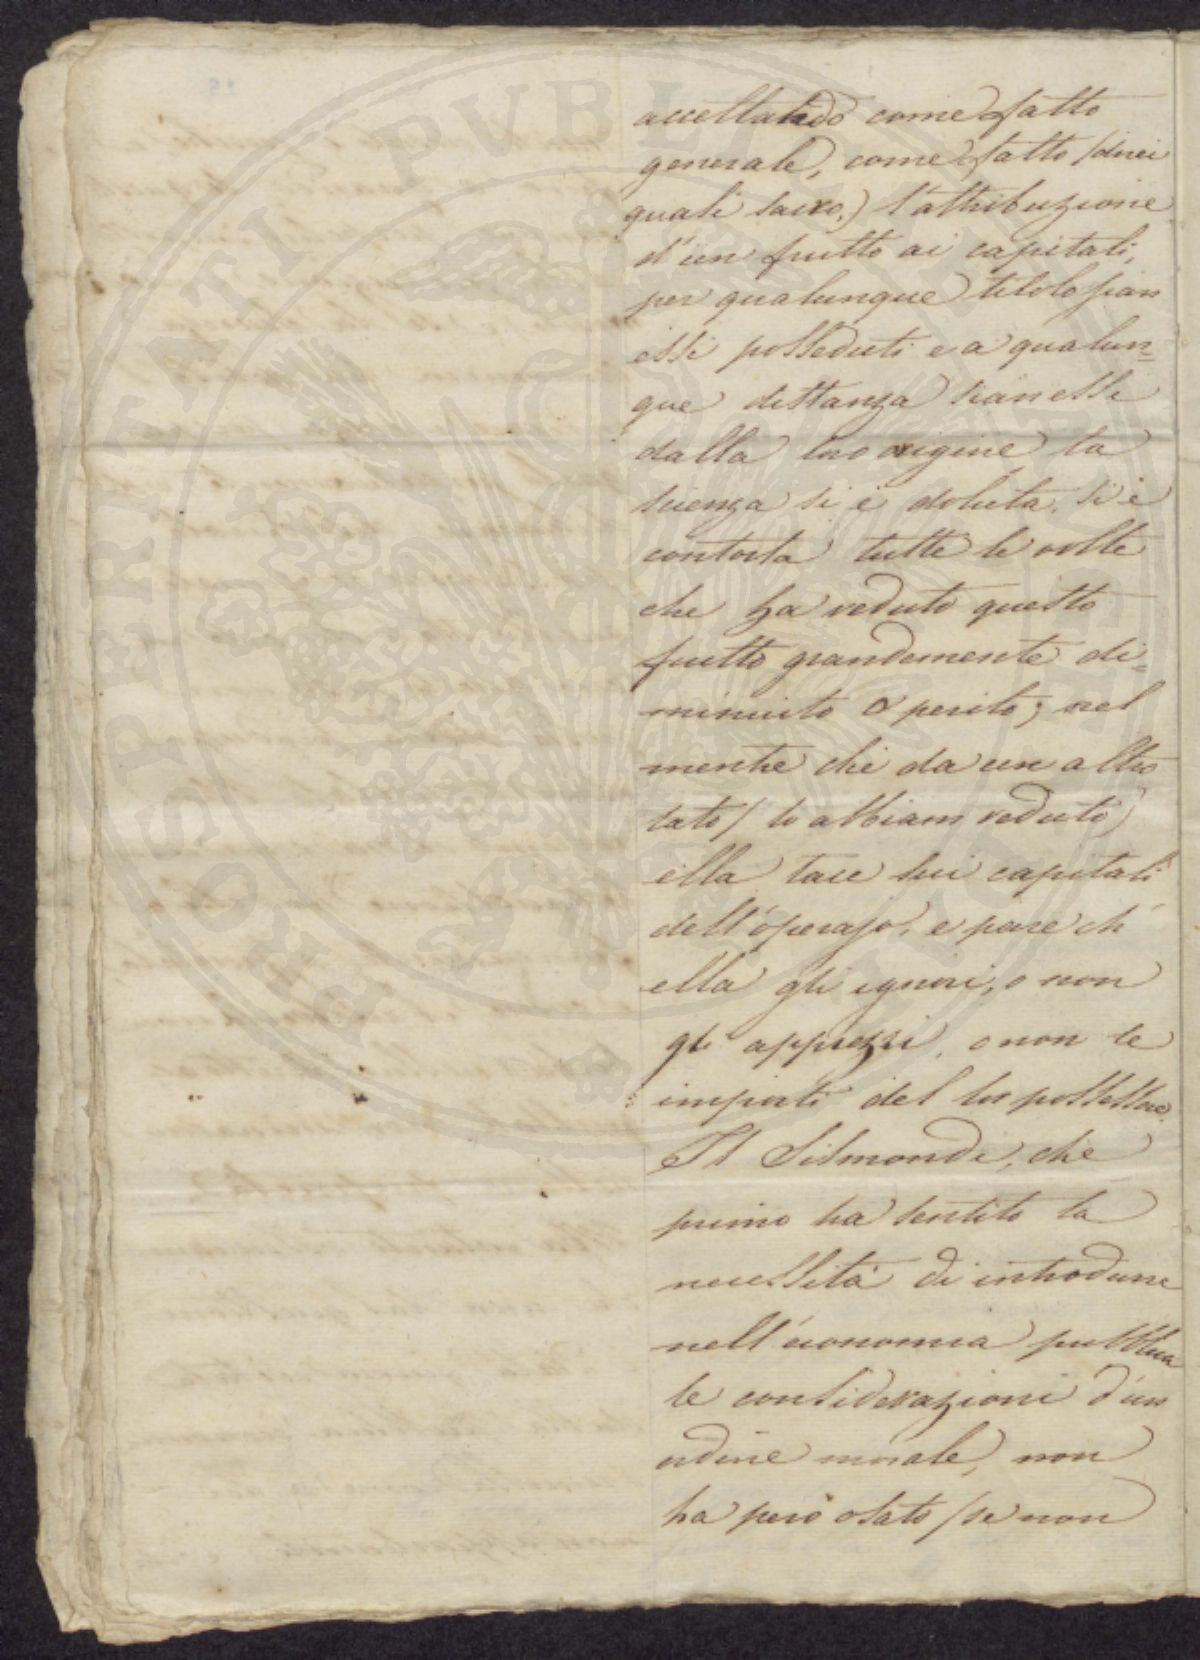 accettando come fatto
generale, come fatto (direi
quasi sacro,) l'attribuzione
d'un frutto ai capitali,
per qualunque titolo sian
essi posseduti e a qualun=
que distanza sian essi
dalla loro origine la
scienza si è doluta, si è
contorta tutte le volte
che ha veduto questo
frutto grandemente di=
minuito o perito; nel
mentre che da un altro
lato (lo abbiam veduto)
ella tace sui capitali
dell'operajo, e pare ch'
ella gli ignori, o non
gli apprezzi, o non le
importi del lor possessore.
Il Sismondi, che
primo ha sentito la
necessità di introdurre
nell'economia pubblica
le considerazioni d'un
ordine morale, non
ha però osato (se non
PROSPERITATI PUBLICAE